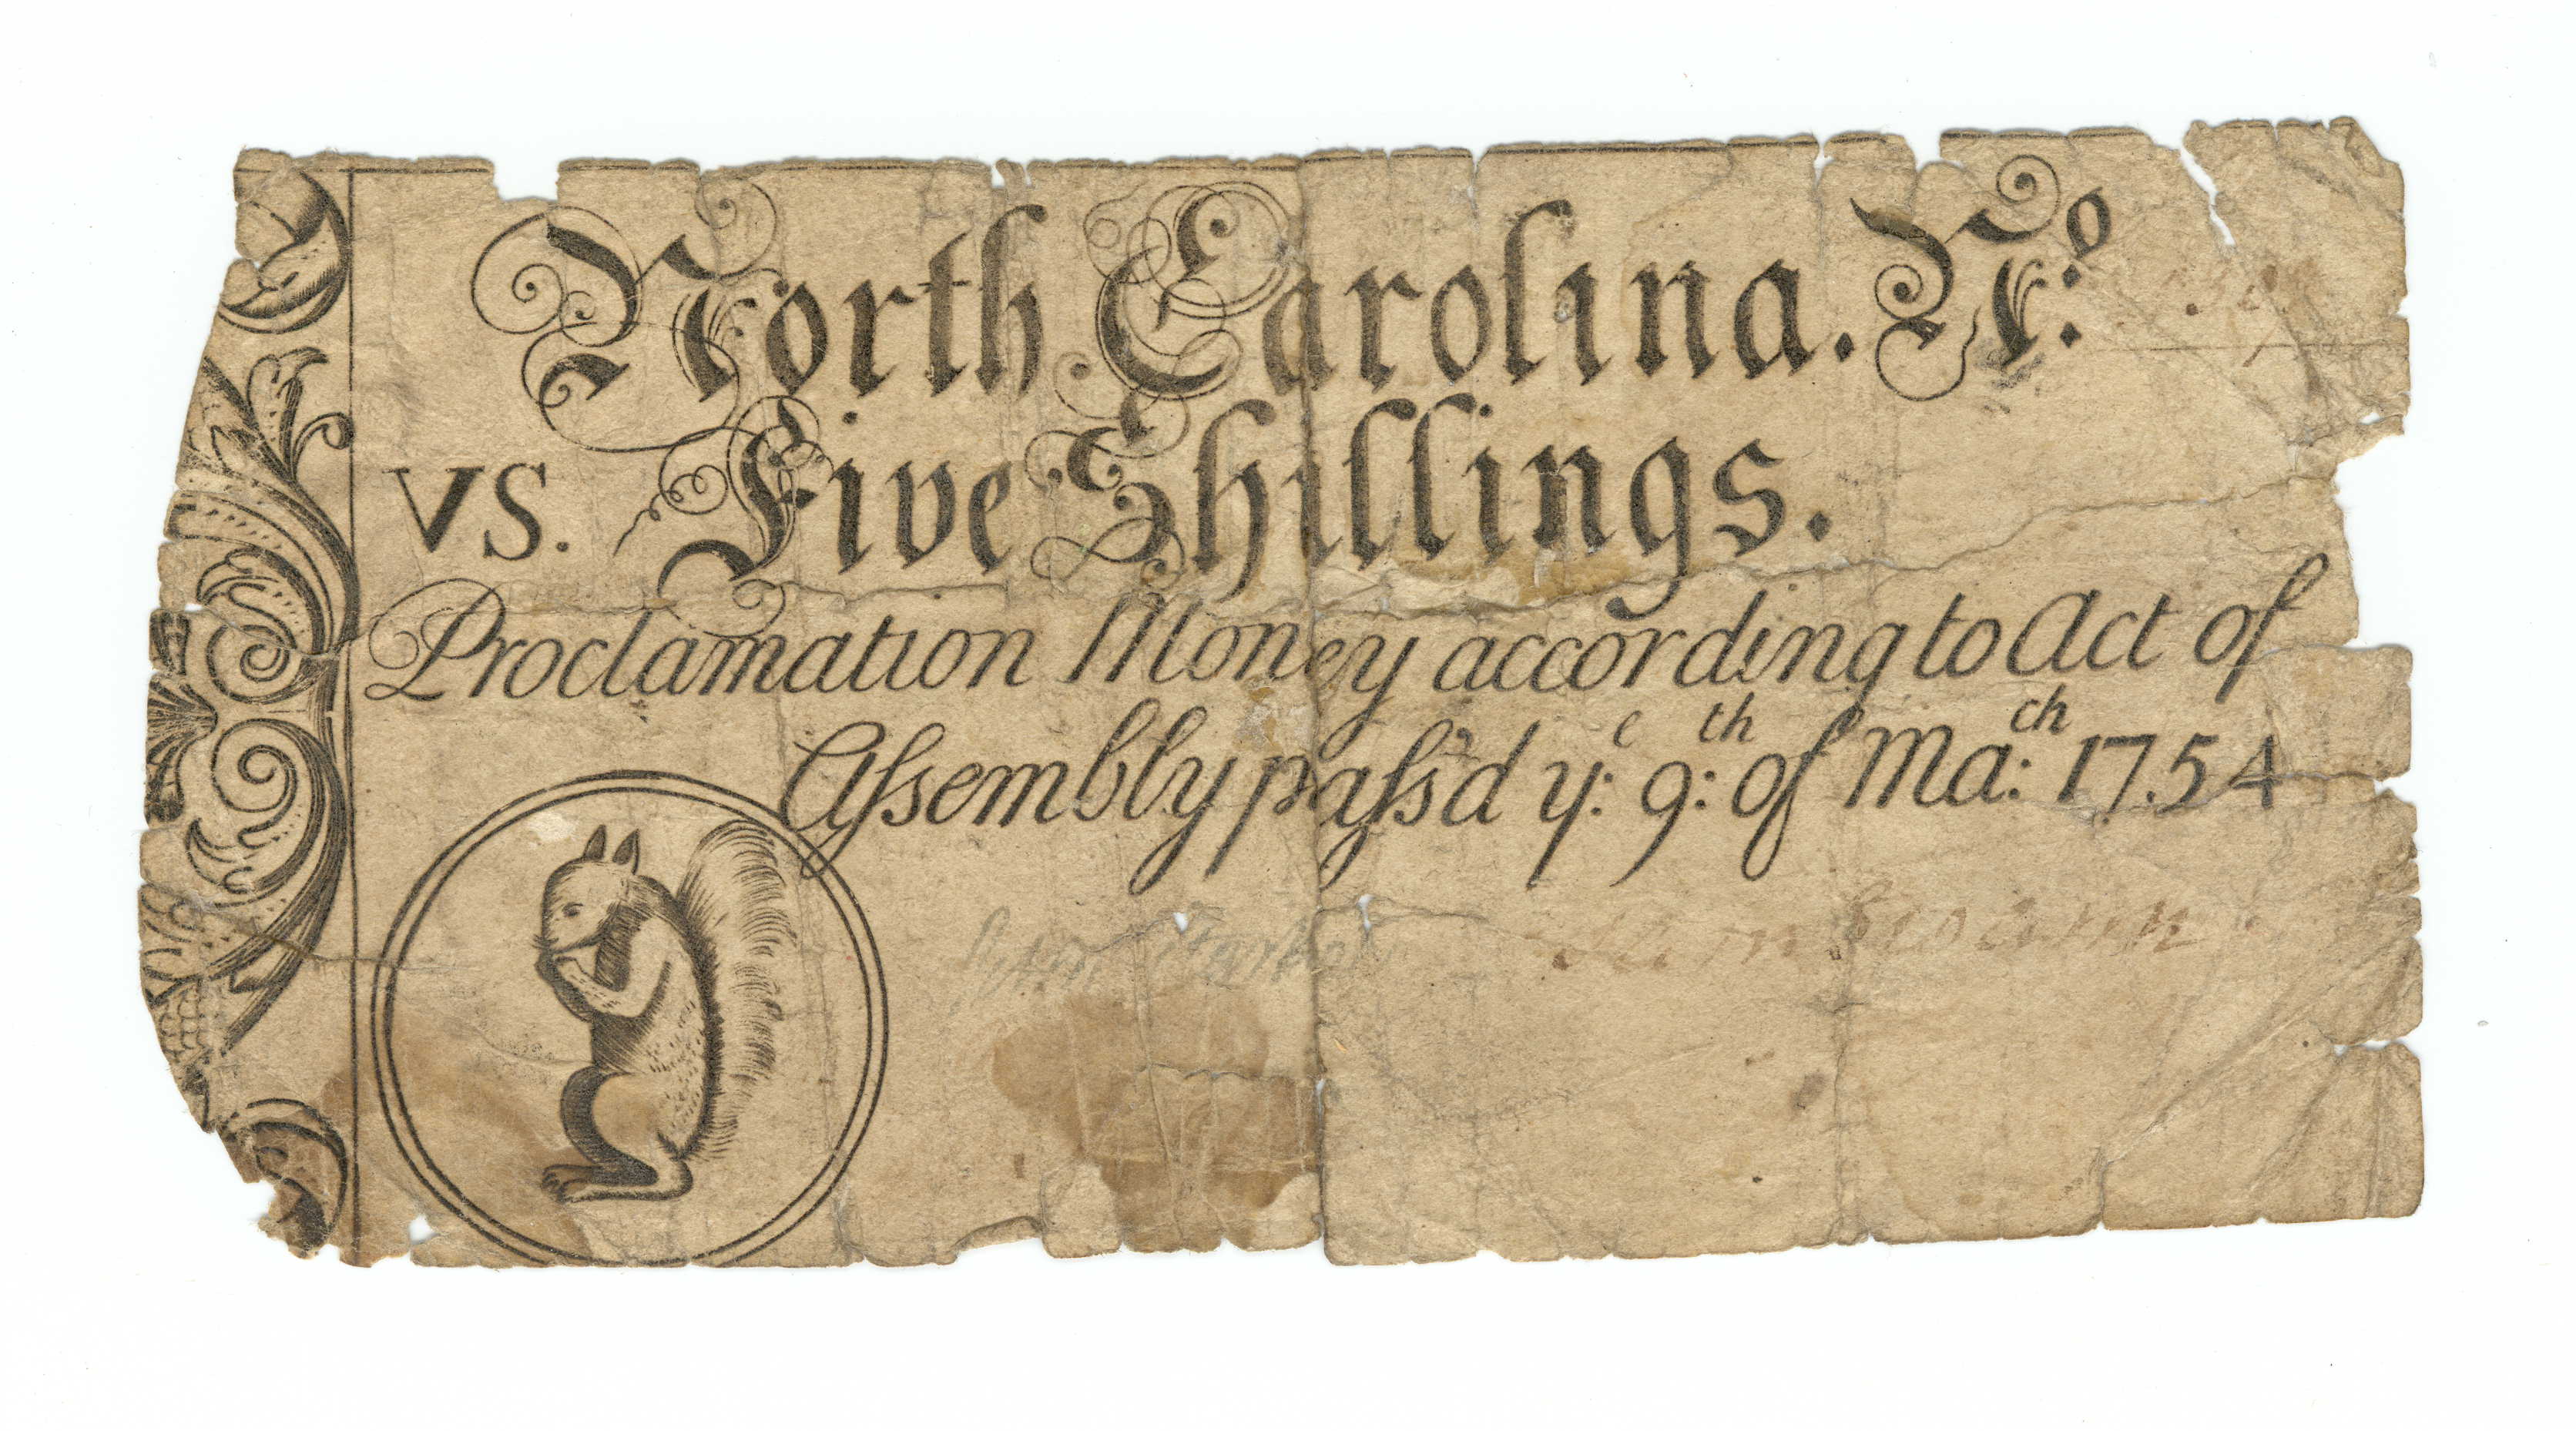 North Carolina. No.
VS. Five Shillings.
Proclamation Money according to Act of
Aſsembly paſs'd ye: 9th: of Mach: 1754